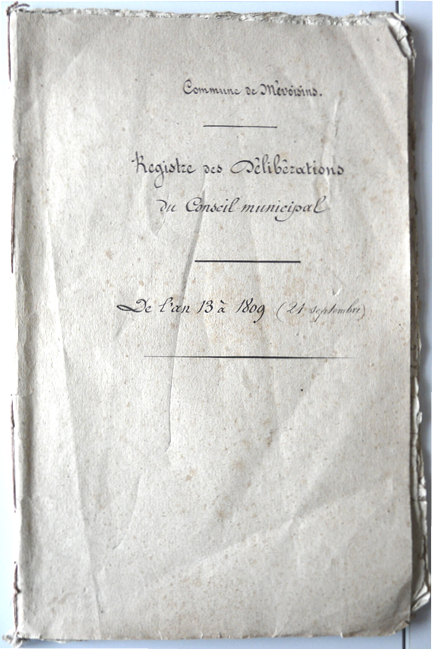 Commune de Mévoisins.
Registre des Délibérations
du Conseil municipal
De l'an 13 à 1809 (21 septembre)